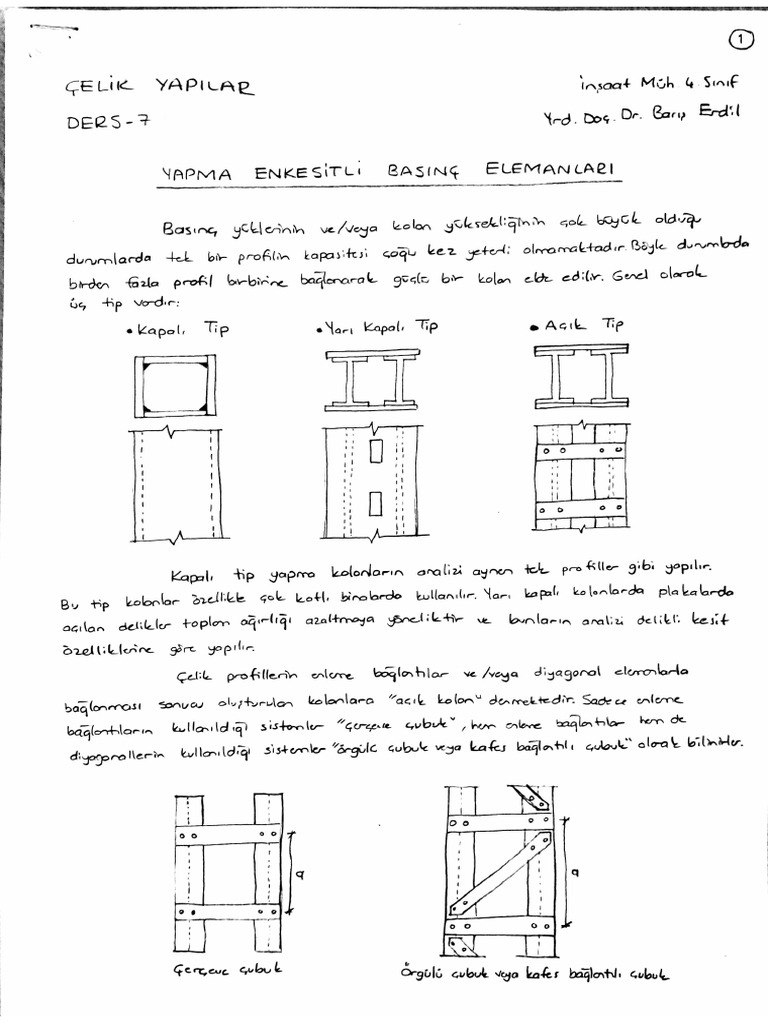 1
ÇELİK YAPILAR
İnşaat Müh 4 Sınıf
DERS-7
Yrd. Doç. Dr. Barış Erdil
YAPMA ENKESİTLİ BASINÇ ELEMANLARI
Basınç yüklerinin ve/veya kolon yüksekliğinin çok büyük olduğu
durumlarda tek bir profilin kapasitesi çoğu kez yeterli olmamaktadır. Böyle durumlarda
birden fazla profil birbirine bağlanarak güçlü bir kolon elde edilir. Genel olarak
üç tip vardır:
• Kapalı Tip
• Yarı Kapalı Tip
• Açık Tip
Kapalı tip yapma kolonların analizi aynen tek profiller gibi yapılır.
Bu tip kolonlar özellikle çok katlı binalarda kullanılır. Yarı kapalı kolonlarda plakalarda
açılan delikler toplam ağırlığı azaltmaya yöneliktir ve bunların analizi delikli kesit
özelliklerine göre yapılır.
Çelik profillerin enleme bağlantılar ve/veya diyagonal elemanlarla
bağlanması sonucu oluşturulan kolonlara "açık kolon" denmektedir. Sadece enleme
bağlantıların kullanıldığı sistemler "çerçeve çubuk", hem enleme bağlantılar hem de
diyagonallerin kullanıldığı sistemler "örgülü çubuk veya kafes bağlantılı çubuk" olarak bilinirler.
a
a
Çerçeve çubuk
Örgülü çubuk veya kafes bağlantılı çubuk